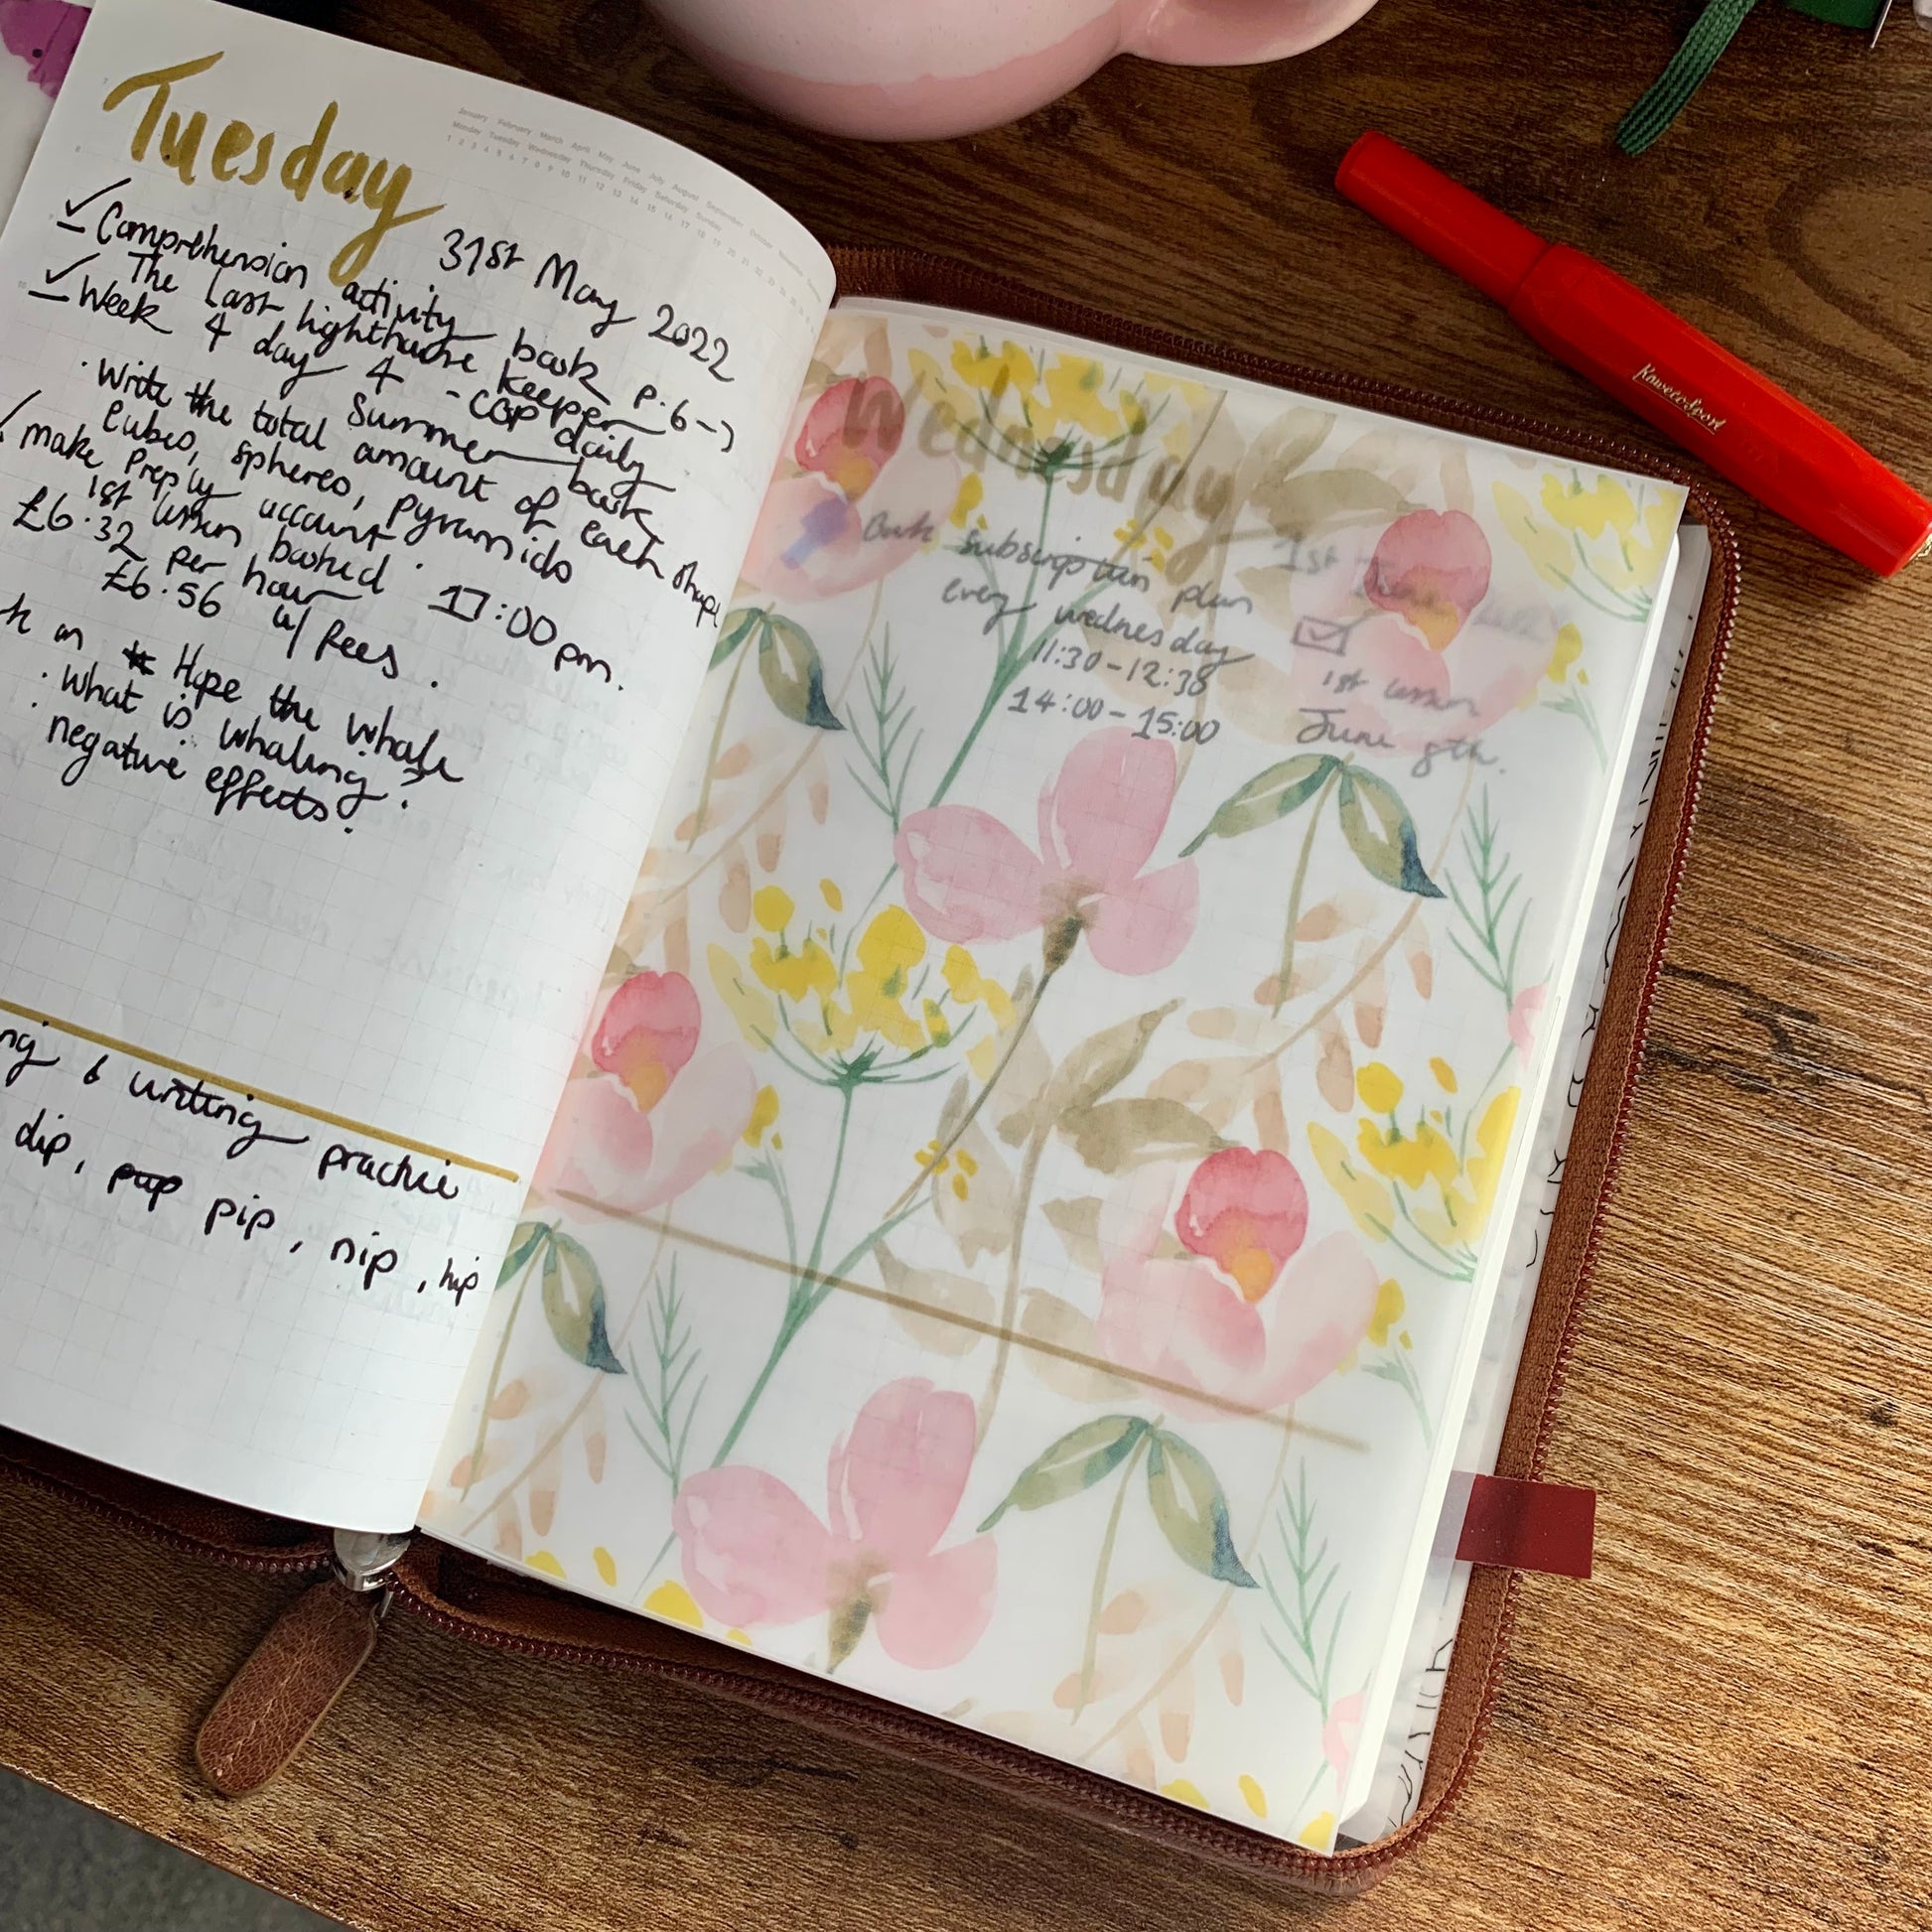 Tuesday
January February March April May June July August September October November
Monday Tuesday Wednesday Thursday Friday Saturday Sunday
1 2 3 4 5 6 7 8 9 10 11 12 13 14 15 16 17 18 19 20 21 22 23 24 25 26 27 28
31st May 2022
Comprehension activity book p.6 →
The last lighthouse keeper
Week 4 day 4 - CGP daily
Summer book
· Write the total amount of each shape
Cubes, spheres, pyramids
make Preply account
1st lesson booked · 17:00pm.
£6.32 per hour
£6.56 w/ fees.
on Hope the whale
· What is whaling?
· negative effects.
& writing practice
dip, pap pip, nip, hip
Wednesday
1st June
Book subscription plan
every wednesday
11:30-12:30
14:00-15:00
1st lesson
June 8th.
KawecoSport